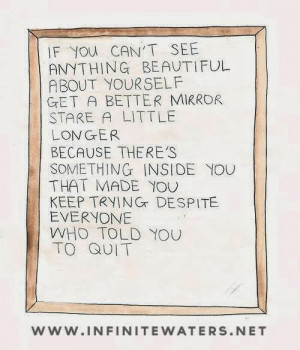 IF YOU CAN'T SEE
ANYTHING BEAUTIFUL
ABOUT YOURSELF
GET A BETTER MIRROR
STARE A LITTLE
LONGER
BECAUSE THERE'S
SOMETHING INSIDE YOU
THAT MADE YOU
KEEP TRYING DESPITE
EVERYONE
WHO TOLD YOU
TO QUIT
WWW.INFINITEWATERS.NET